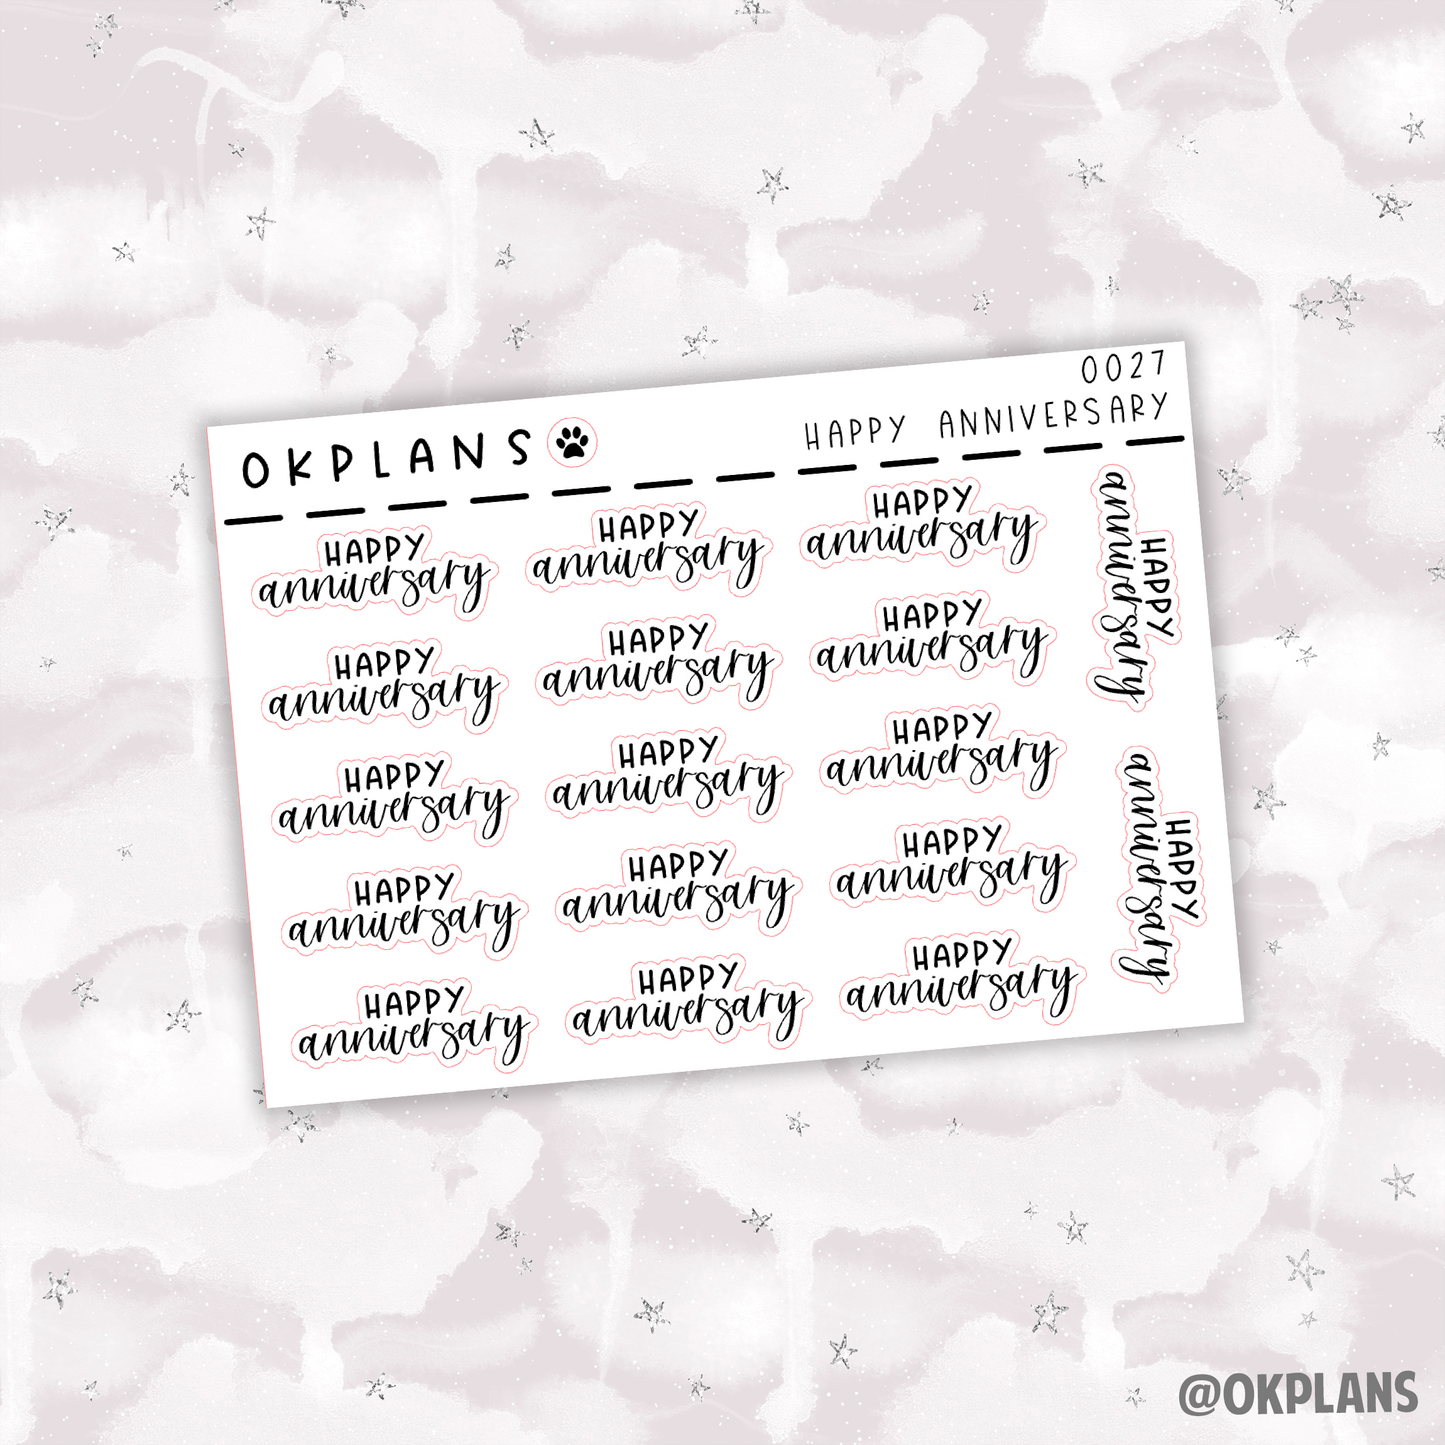 OKPLANS
0027
HAPPY ANNIVERSARY
HAPPY
anniversary
HAPPY
anniversary
HAPPY
anniversary
HAPPY
anniversary
HAPPY
anniversary
HAPPY
anniversary
HAPPY
anniversary
HAPPY
anniversary
HAPPY
anniversary
HAPPY
anniversary
HAPPY
anniversary
HAPPY
anniversary
HAPPY
anniversary
HAPPY
anniversary
HAPPY
anniversary
HAPPY
anniversary
HAPPY
anniversary
@OKPLANS